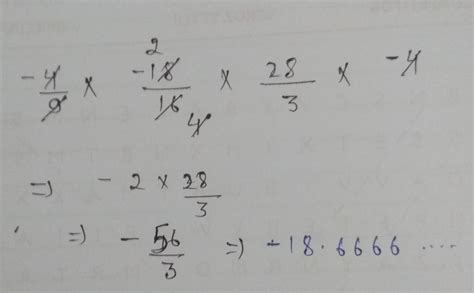 2
-4/9 × -18/16 × 28/3 × -4
4
=> - 2 × 28/3
=> - 56/3 => -18.6666 ....